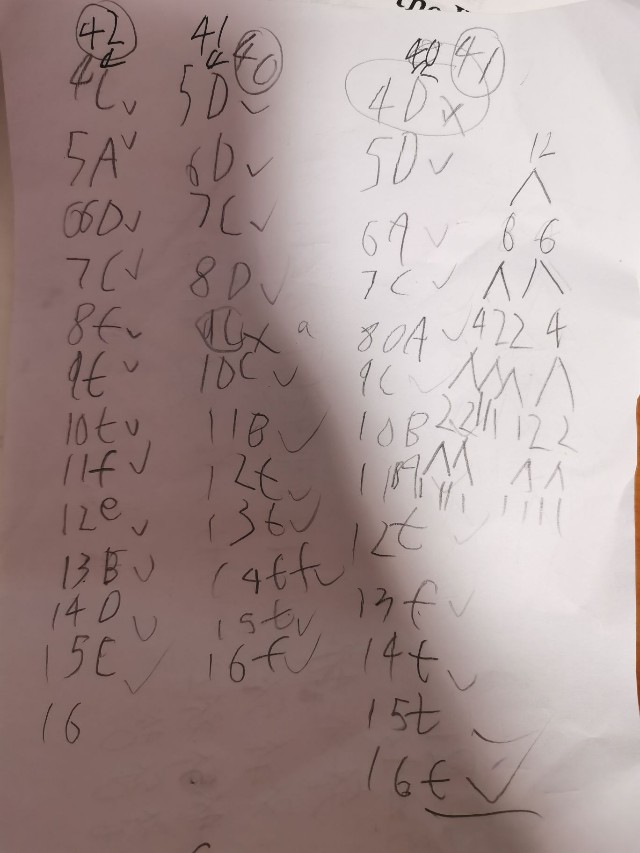 42
4C ✓
5A ✓
6D ✓
7C ✓
8f ✓
9t ✓
10t ✓
11f ✓
12e ✓
13B ✓
14D ✓
15C ✓
16
41 40
5D ✓
6D ✓
7C ✓
8D ✓
x a
10C ✓
11B ✓
12t ✓
13t ✓
14tf ✓
15t ✓
16f ✓
40 41
4D x
5D ✓
6A ✓
7C ✓
8A ✓
9C ✓
10B
11A
12t ✓
13f ✓
14t ✓
15t
16t ✓
12
6 6
4 2 2 4
2 2 1 1 1 1 2 2
1 1 1 1 1 1 1 1